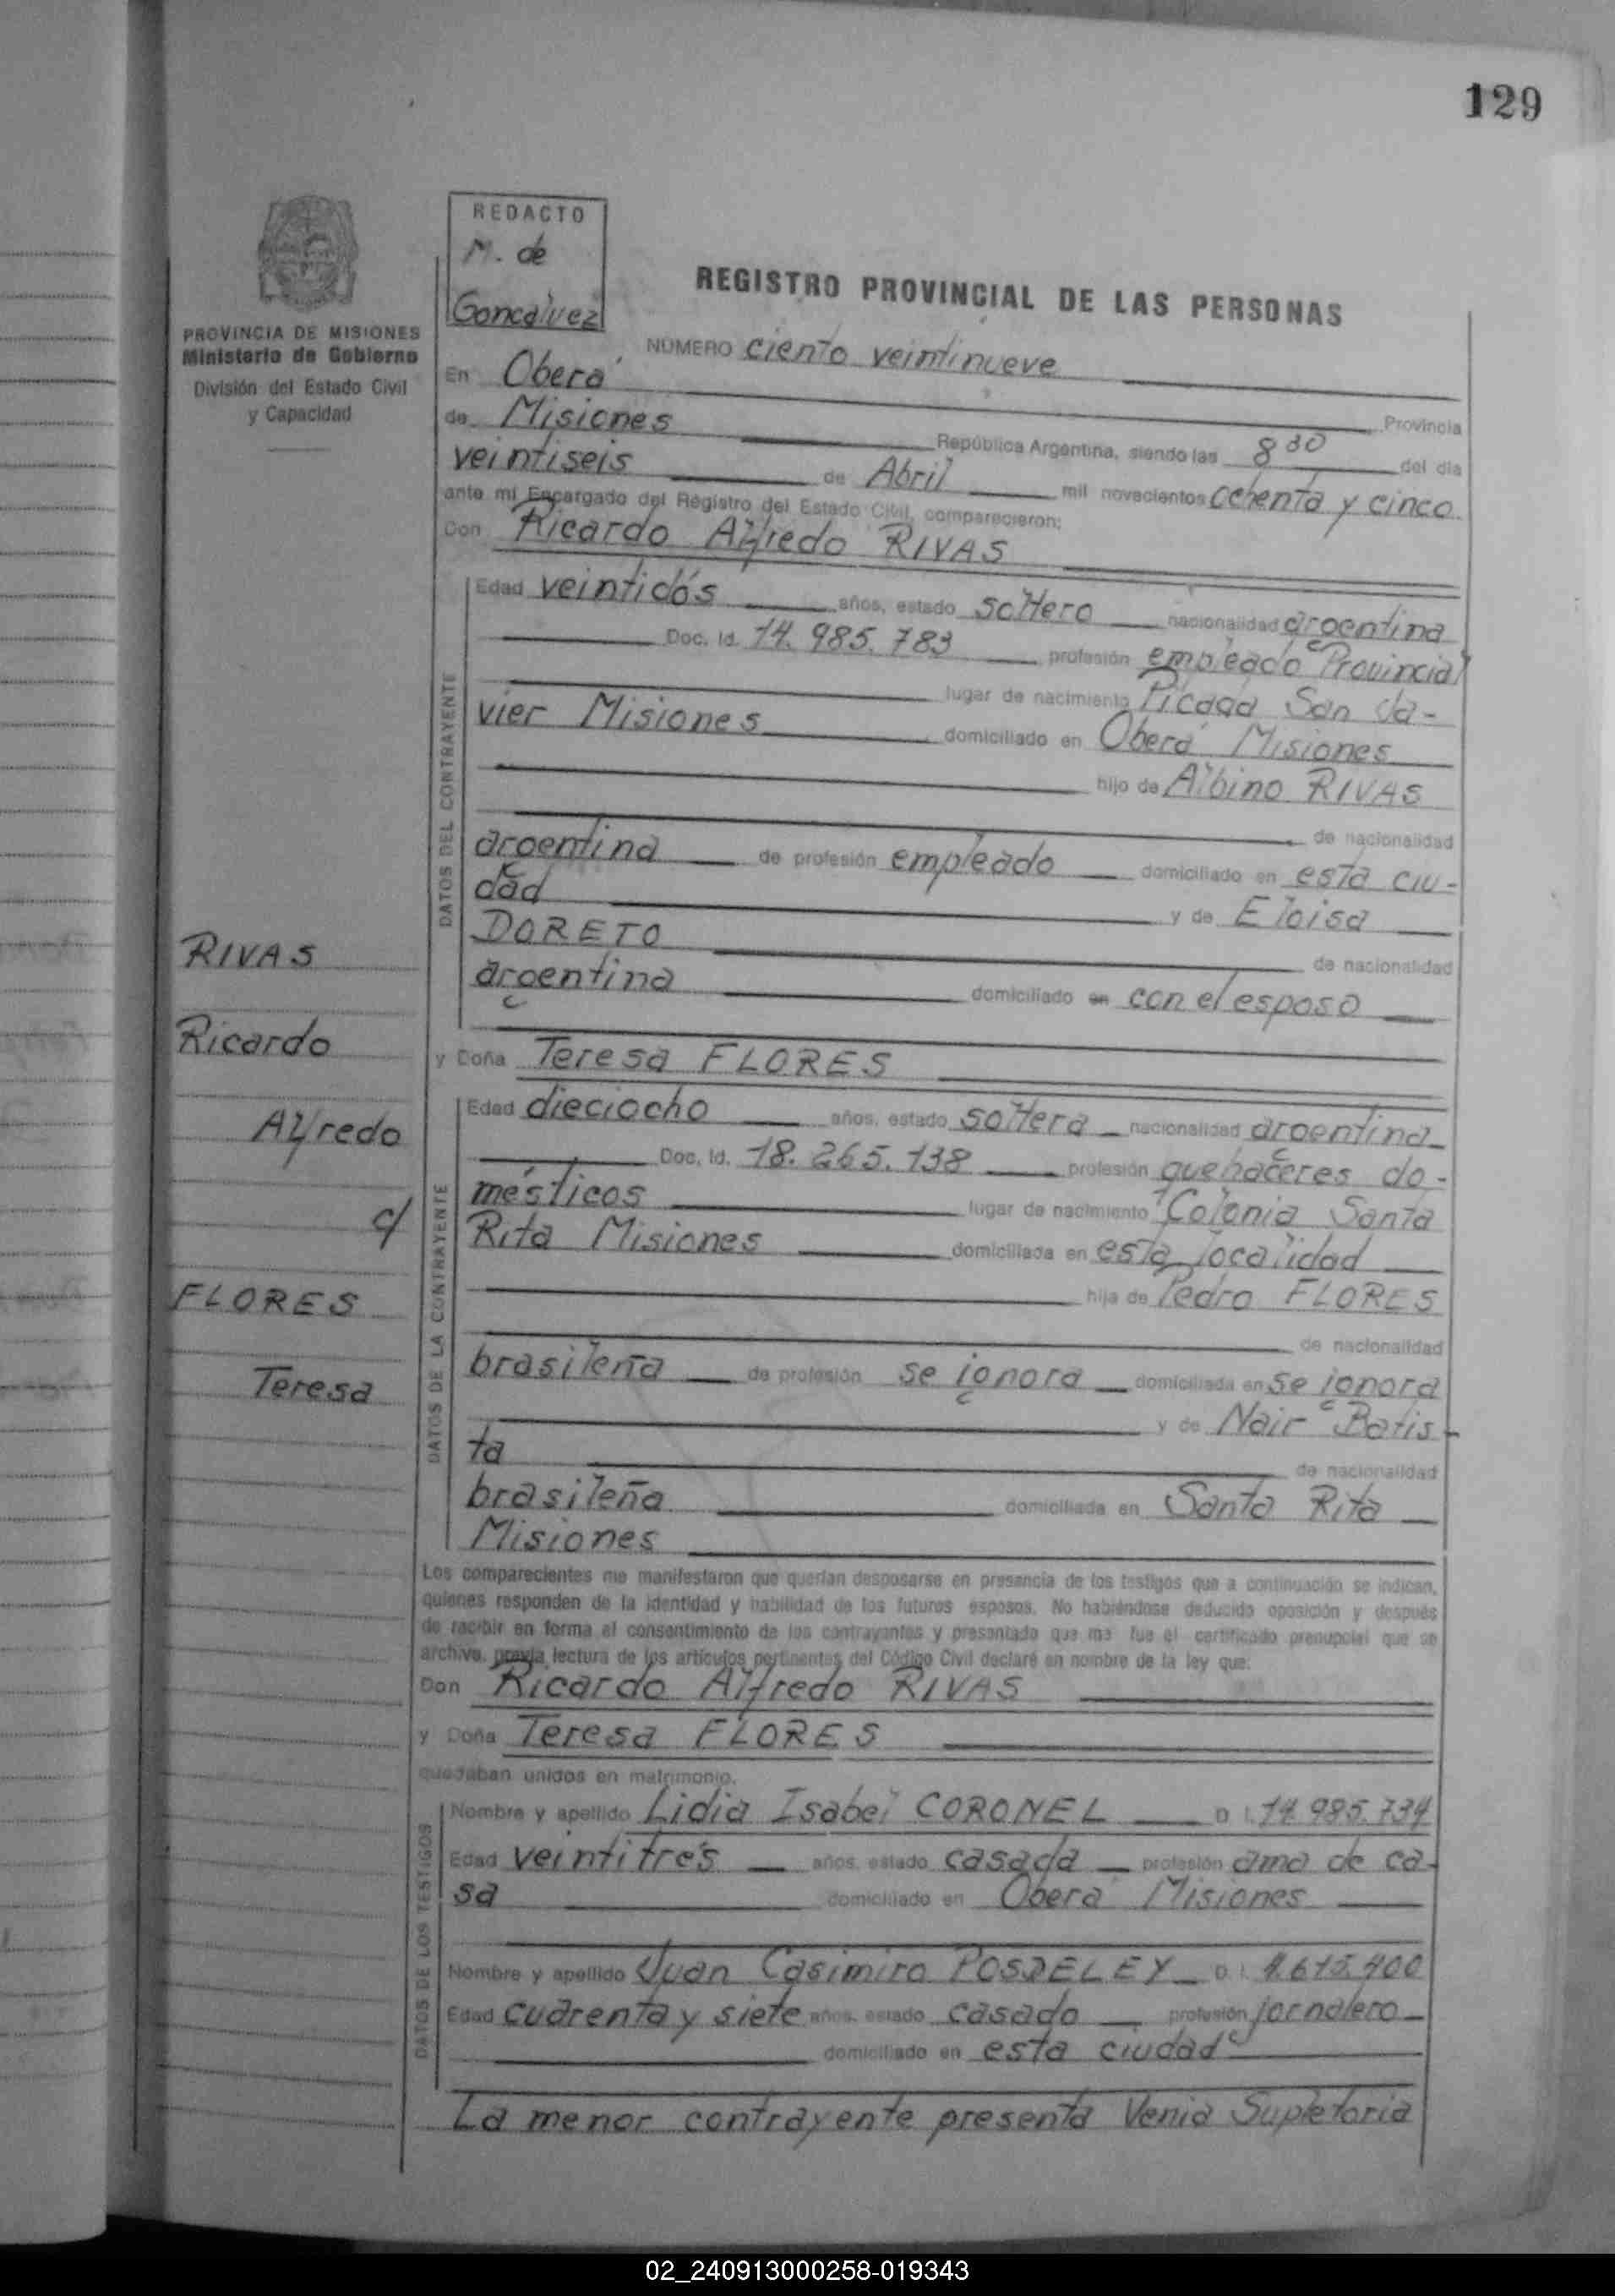 129
REDACTO
M. de
Goncalvez
REGISTRO PROVINCIAL DE LAS PERSONAS
PROVINCIA DE MISIONES
Ministerio de Gobierno
División del Estado Civil
y Capacidad
NÚMERO ciento veintinueve
En Oberá
Provincia
de Misiones República Argentina, siendo las 8 30 del día
veintiseis de Abril mil novecientos ochenta y cinco
ante mí Encargado del Registro del Estado Civil, comparecieron:
Don Ricardo Alfredo RIVAS
DATOS DEL CONTRAYENTE
Edad veintidós años, estado soltero nacionalidad argentina
Doc. Id. 14.985.783 profesión empleado Provincial
lugar de nacimiento Picada San Ja-
vier Misiones domiciliado en Oberá Misiones
hijo de Albino RIVAS
de nacionalidad
argentina de profesión empleado domiciliado en esta ciu-
dad y de Eloisa
DORETO
de nacionalidad
argentina domiciliado en con el esposo
y Doña Teresa FLORES
DATOS DE LA CONTRAYENTE
Edad dieciocho años, estado soltera nacionalidad argentina
Doc. Id. 18.265.138 profesión quehaceres do-
mésticos lugar de nacimiento Colonia Santa
Rita Misiones domiciliada en esta localidad
hija de Pedro FLORES
de nacionalidad
brasileña de profesión se ignora domiciliada en se ignora
y de Nair Batis-
ta de nacionalidad
brasileña domiciliada en Santa Rita
Misiones
RIVAS
Ricardo
Alfredo
c/
FLORES
Teresa
Los comparecientes me manifestaron que querían desposarse en presencia de los testigos que a continuación se indican,
quienes responden de la identidad y habilidad de los futuros esposos. No habiéndose deducido oposición y después
de recibir en forma el consentimiento de los contrayentes y presentado que me fue el certificado prenupcial que se
archiva, previa lectura de los artículos pertinentes del Código Civil declaré en nombre de la ley que:
Don Ricardo Alfredo RIVAS
y Doña Teresa FLORES
quedaban unidos en matrimonio.
DATOS DE LOS TESTIGOS
Nombre y apellido Lidia Isabel CORONEL D. I. 14.985.734
Edad veintitrés años, estado casada profesión ama de ca-
sa domiciliado en Oberá Misiones
Nombre y apellido Juan Casimiro D. I.
Edad cuarenta y siete años, estado casado profesión jornalero
domiciliado en esta ciudad
La menor contrayente presenta Venia Supletoria
02_240913000258-019343